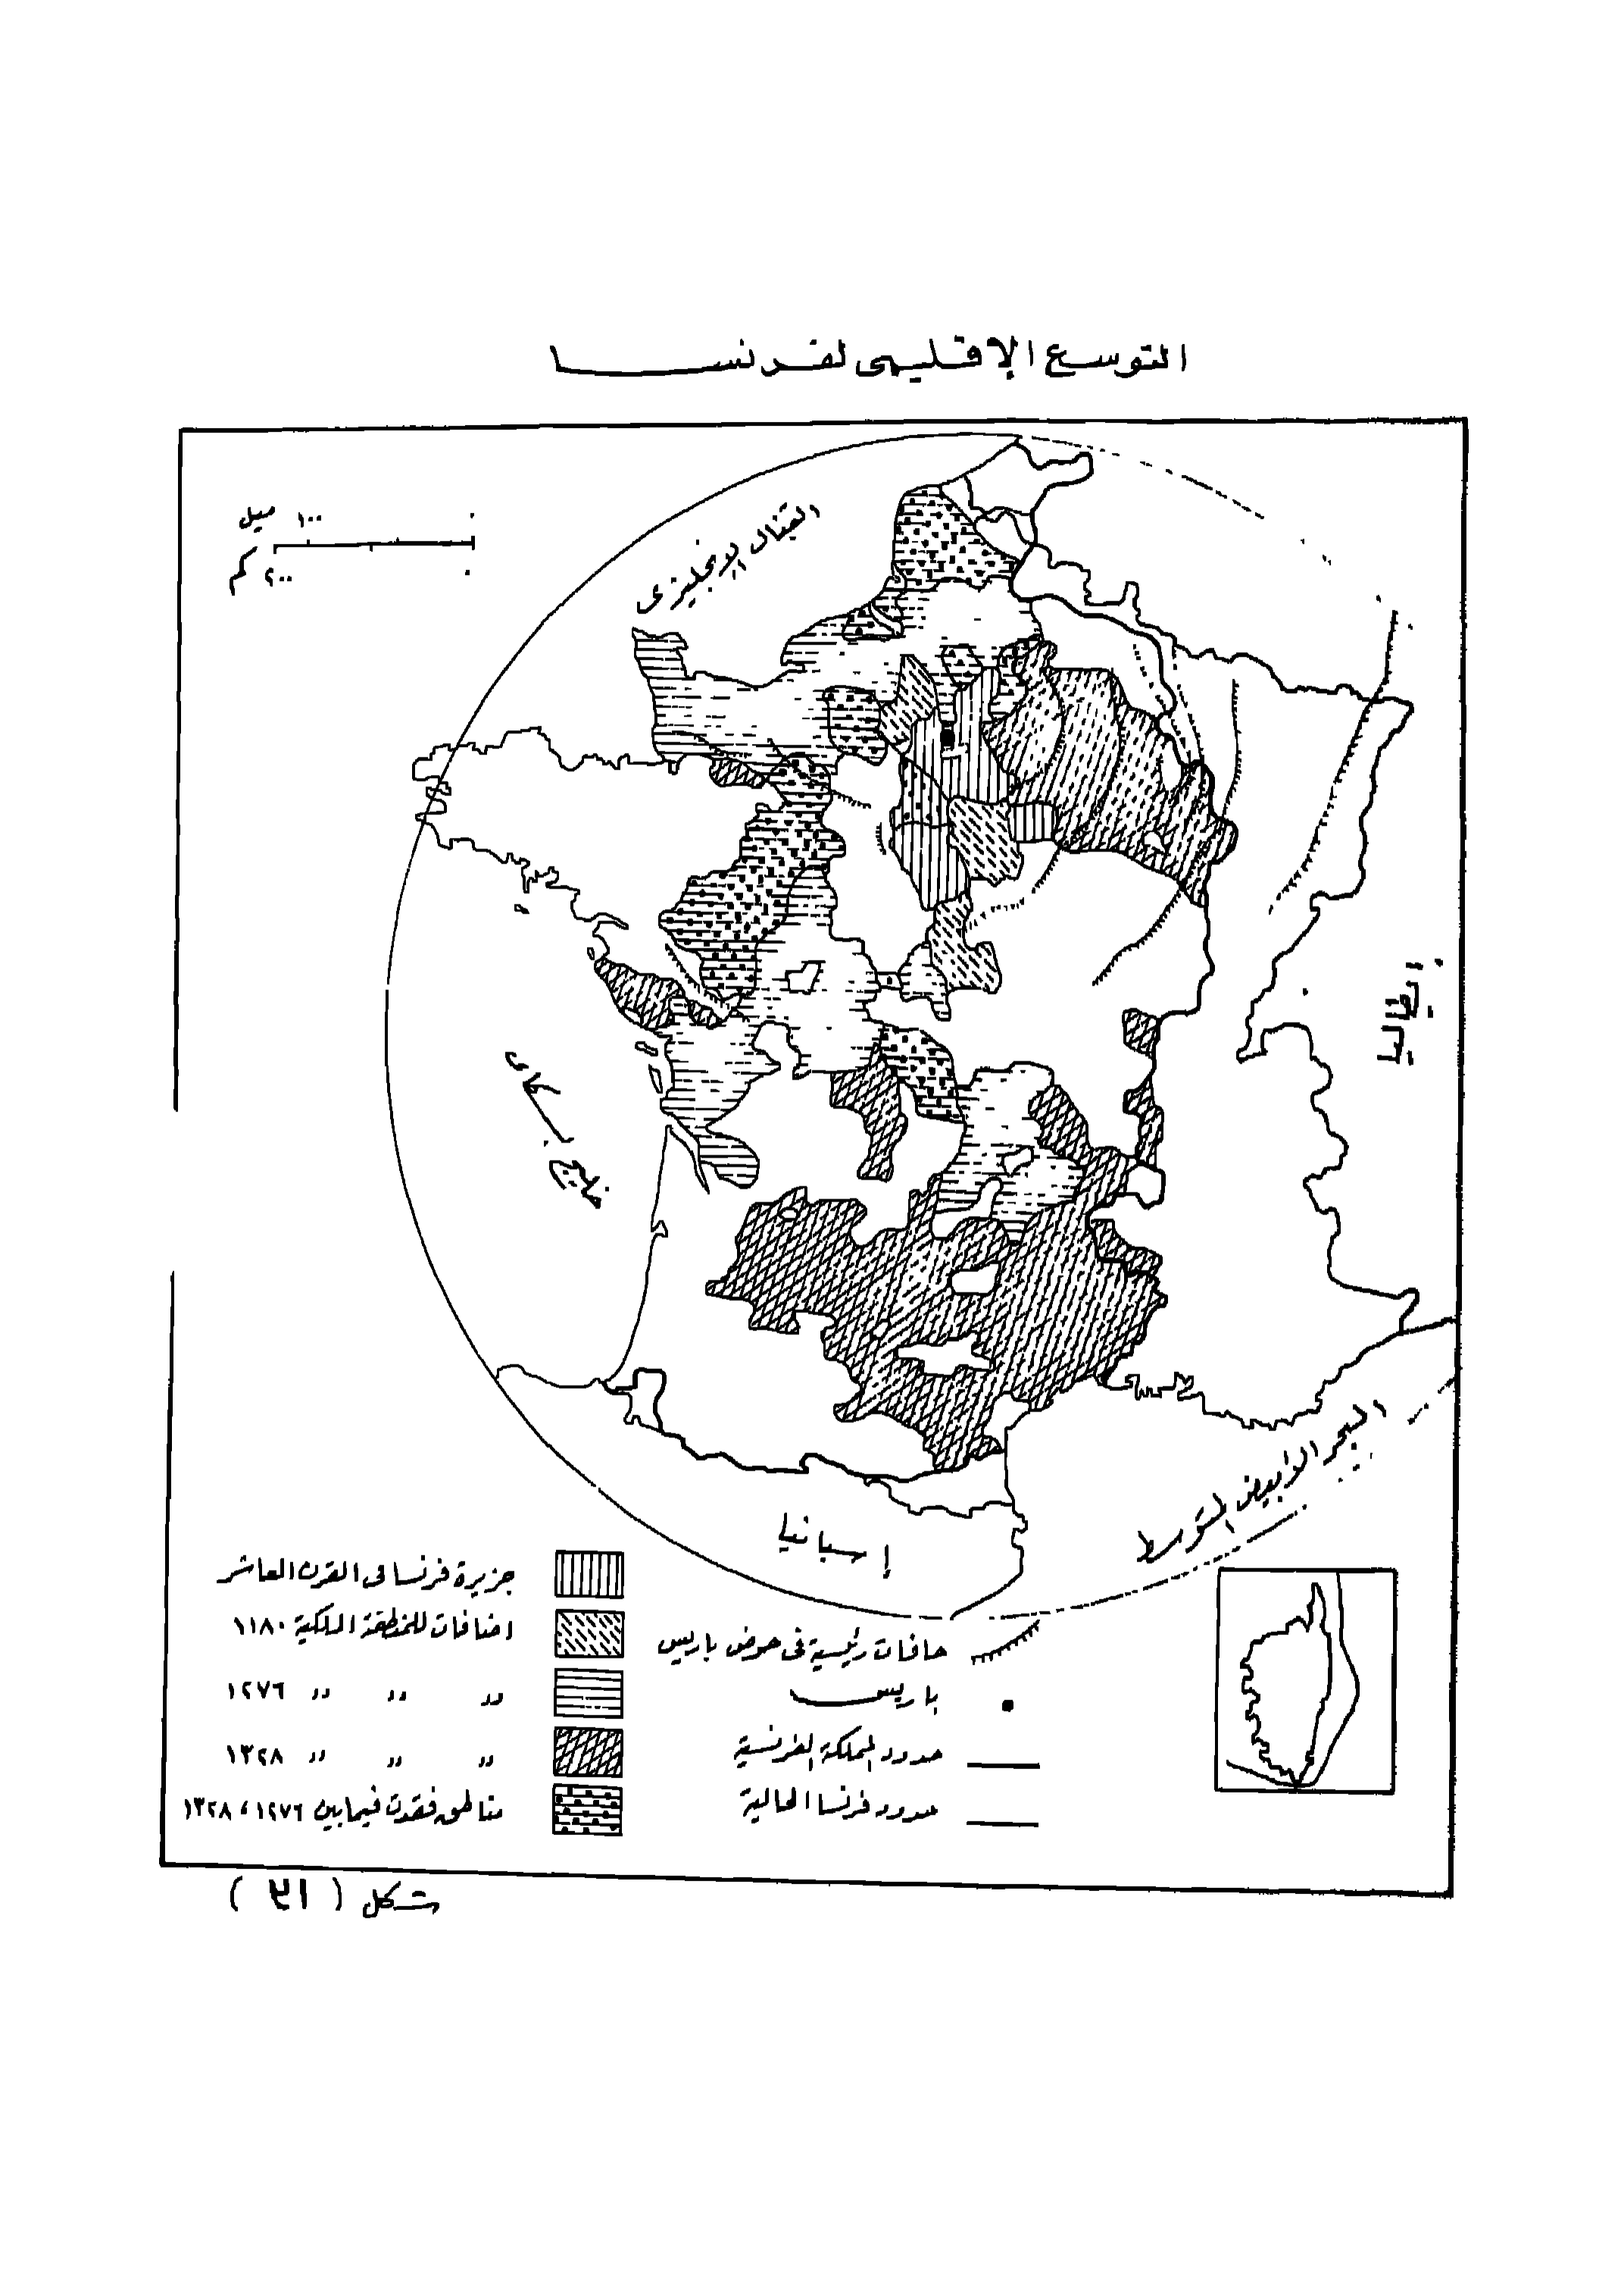 التوسع الإقليمى لفرنسا
١٠٠ ميل ٠
٢٠٠ كم ٠
القنال الإنجليزى
إيطاليا
خليج بسكاى
البحر الأبيض المتوسط
إسبانيا
جزيرة فرنسا فى القرن العاشر
اضافات للمنطقة الملكية ١١٨٠
〃 〃 〃 ١٢٧٦
〃 〃 〃 ١٣٢٨
مناطق فقدت فيما بين ١٢٧٦ ، ١٣٢٨
حافات رئيسية فى حوض باريس
باريس
حدود المملكة الفرنسية
حدود فرنسا الحالية
شكل ( ٣١ )